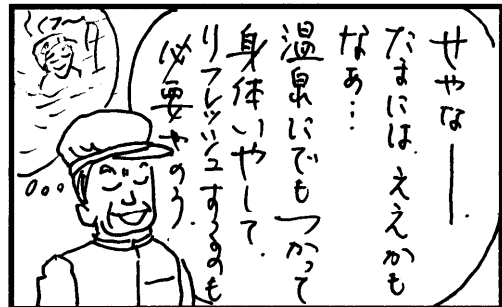 せやなー
たまには ええかも
なぁ…
温泉にでも つかって
身体いやして
リフレッシュするのも
必要やのう
くぅ〜〜